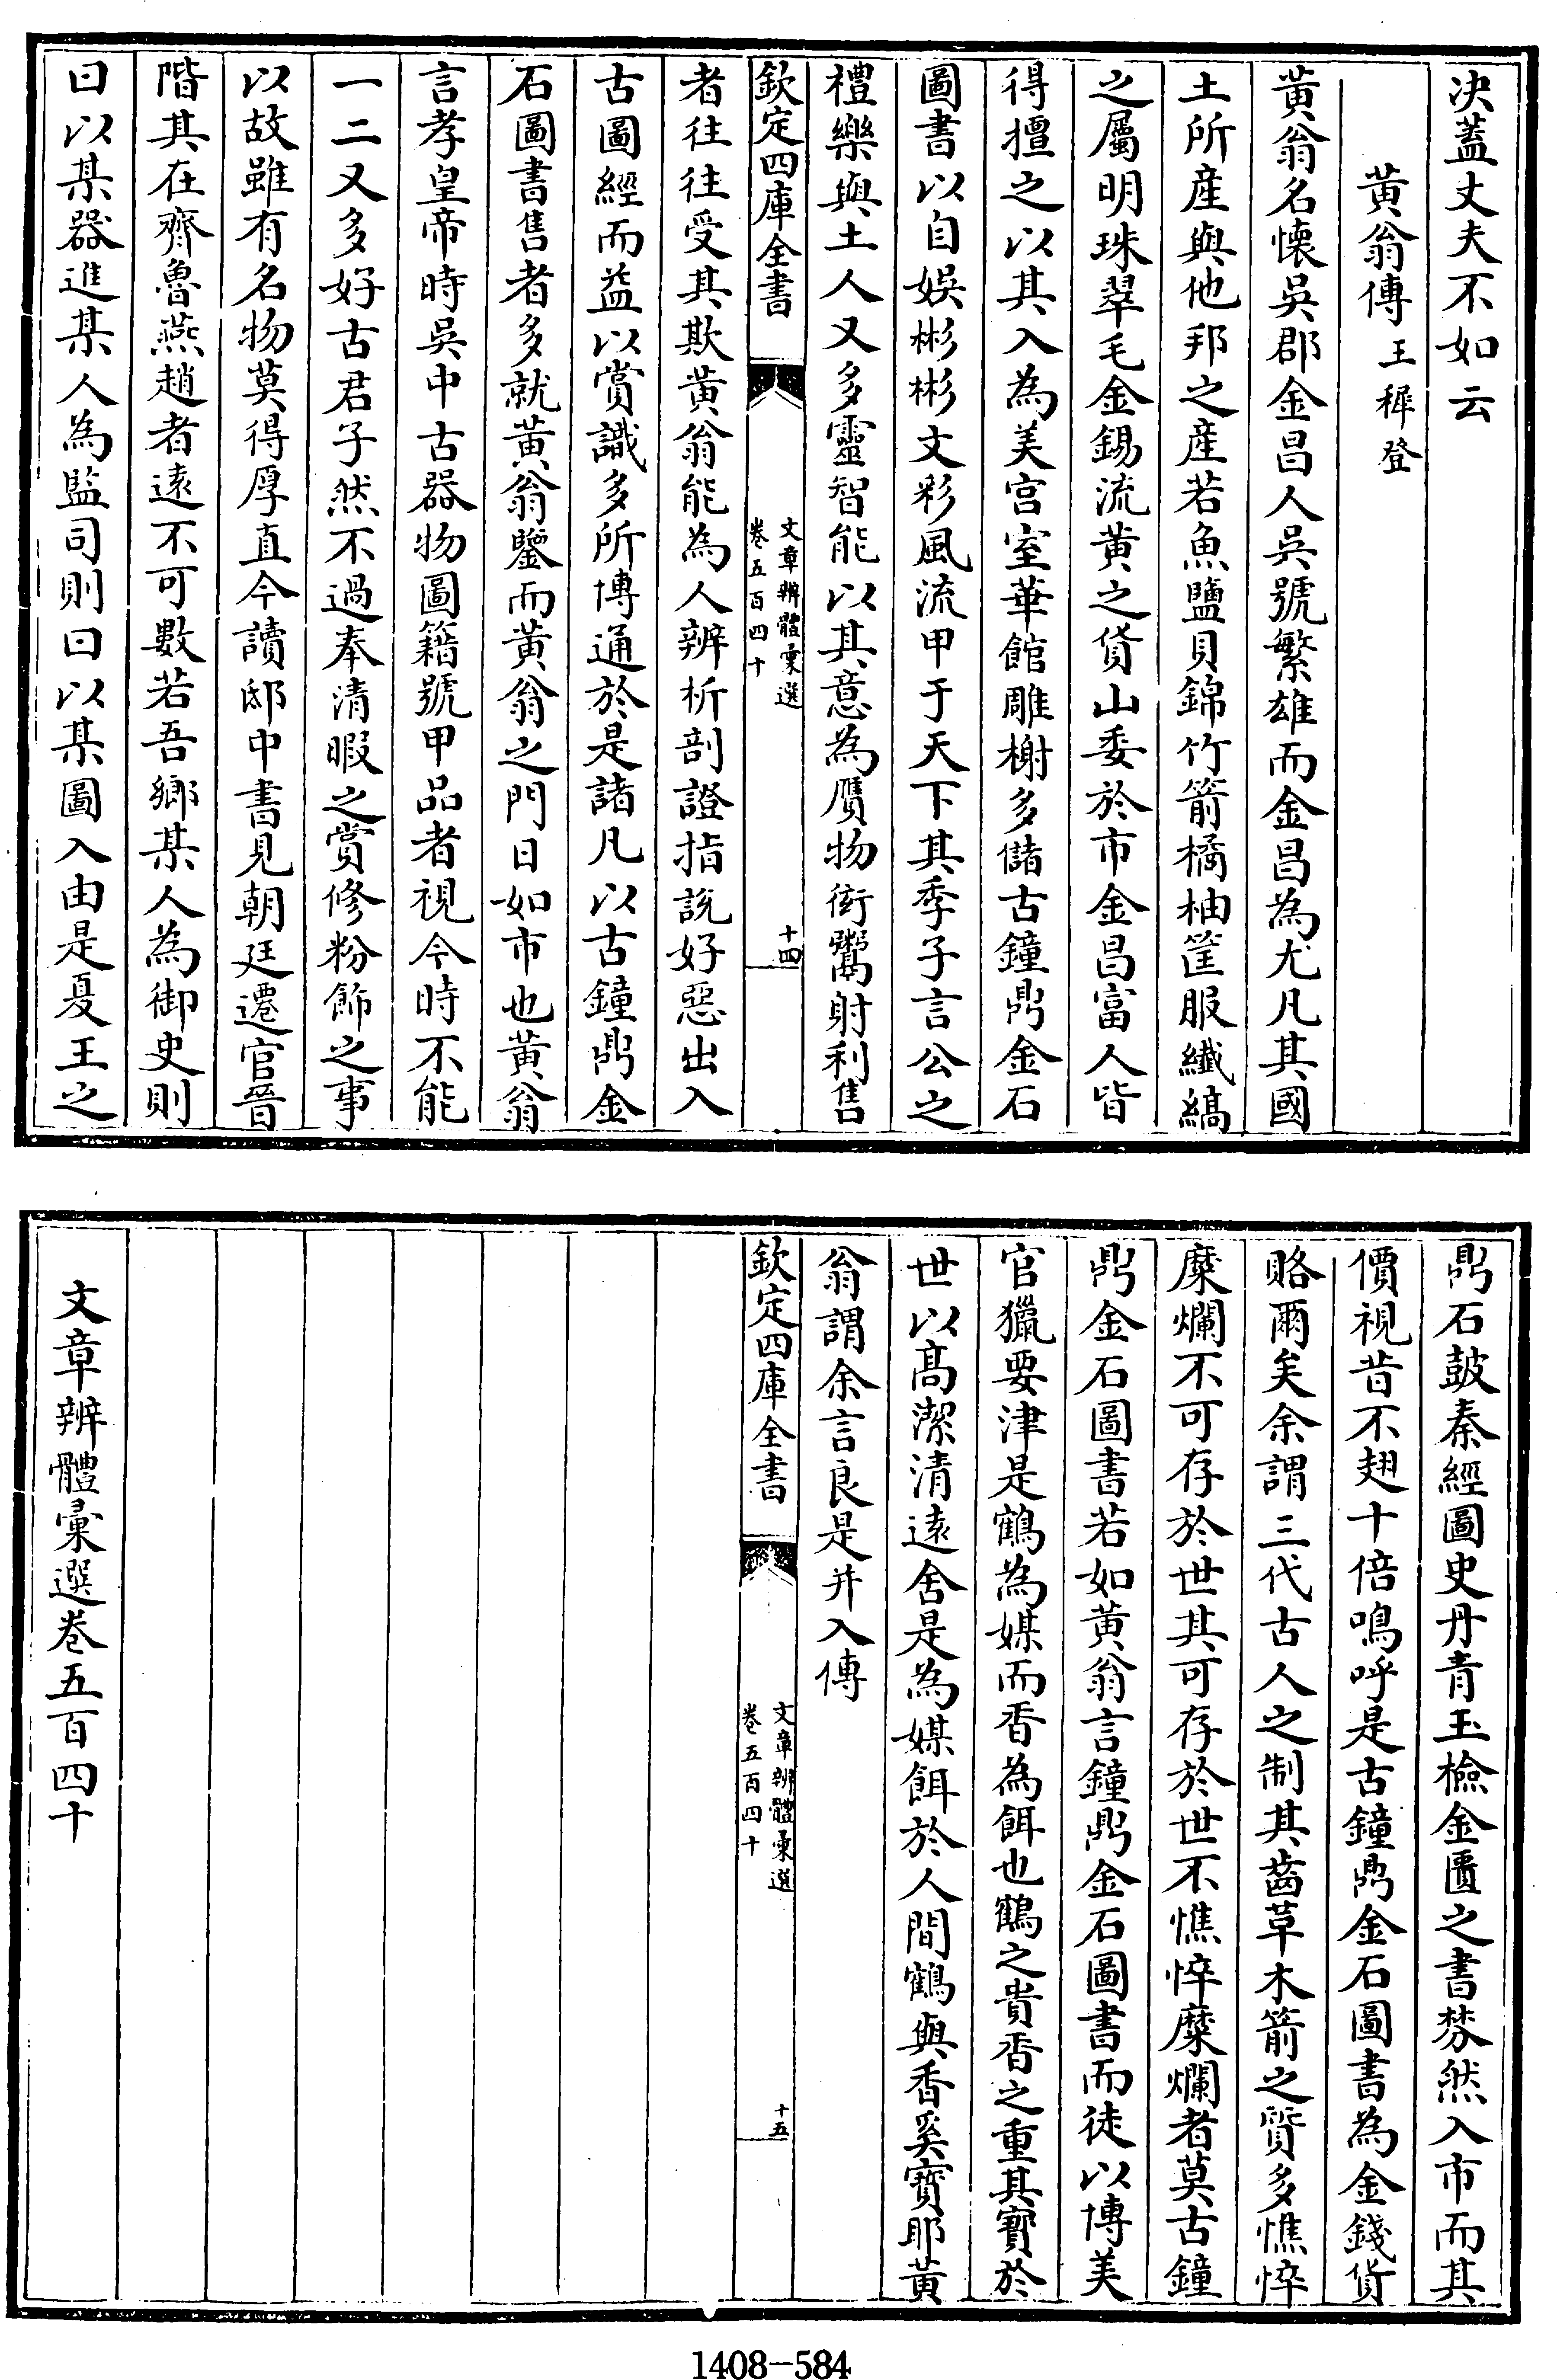 決蓋丈夫不如云
黄翁傳　王穉登
黄翁名懐吳郡金昌人吳號繁雄而金昌為尤凡其國
土所産與他邦之産若魚鹽貝錦竹箭橘柚筐服纎縞
之屬明珠翠毛金錫流黄之貨山委於市金昌富人皆
得擅之以其入為美宫室華館雕榭多儲古鐘鼎金石
圖書以自娯彬彬文彩風流甲于天下其季子言公之
禮樂與土人又多靈智能以其意為贋物衒鬻射利售
欽定四庫全書
文章辨體彚選
卷五百四十
十四
者往往受其欺黄翁能為人辨析剖證指說好惡出入
古圖經而益以賞識多所博通於是諸凡以古鐘鼎金
石圖書售者多就黄翁鑒而黄翁之門日如市也黄翁
言孝皇帝時吳中古器物圖籍號甲品者視今時不能
一二又多好古君子然不過奉清暇之賞修粉飾之事
以故雖有名物莫得厚直今讀邸中書見朝廷遷官晉
階其在齊魯燕趙者逺不可數若吾鄉某人為御史則
曰以某器進某人為監司則曰以某圖入由是夏王之
鼎石鼓秦經圖史丹青玉檢金匱之書棼然入市而其
價視昔不翅十倍嗚呼是古鐘鼎金石圖書為金錢貨
賂爾矣余謂三代古人之制其齒草木箭之質多憔悴
糜爛不可存於世其可存於世不憔悴糜爛者莫古鐘
鼎金石圖書若如黄翁言鐘鼎金石圖書而徒以博美
官獵要津是鶴為媒而香為餌也鶴之貴香之重其寳於
世以髙潔清逺舍是為媒餌於人間鶴與香奚寳耶黄
翁謂余言良是并入傳
欽定四庫全書
文章辨體彚選
卷五百四十
十五
文章辨體彚選卷五百四十
1408-584